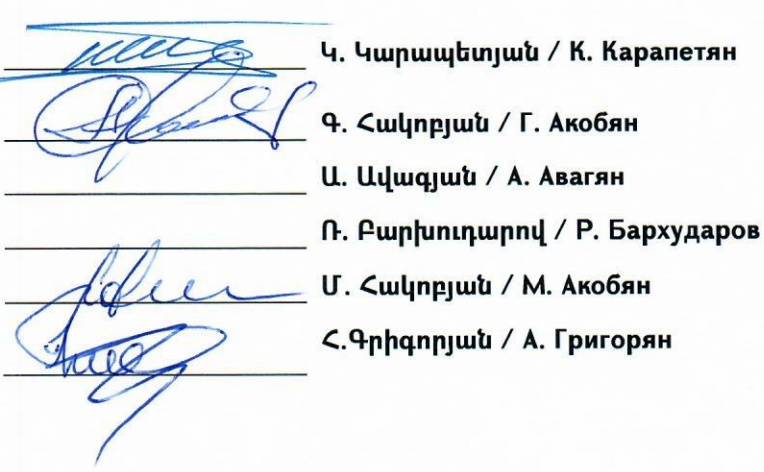 Կ. Կարապետյան / К. Карапетян
Գ. Հակոբյան / Г. Акобян
Ա. Ավագյան / А. Авагян
Ռ. Բարխուդարով / Р. Бархударов
Մ. Հակոբյան / М. Акобян
Հ.Գրիգորյան / А. Григорян